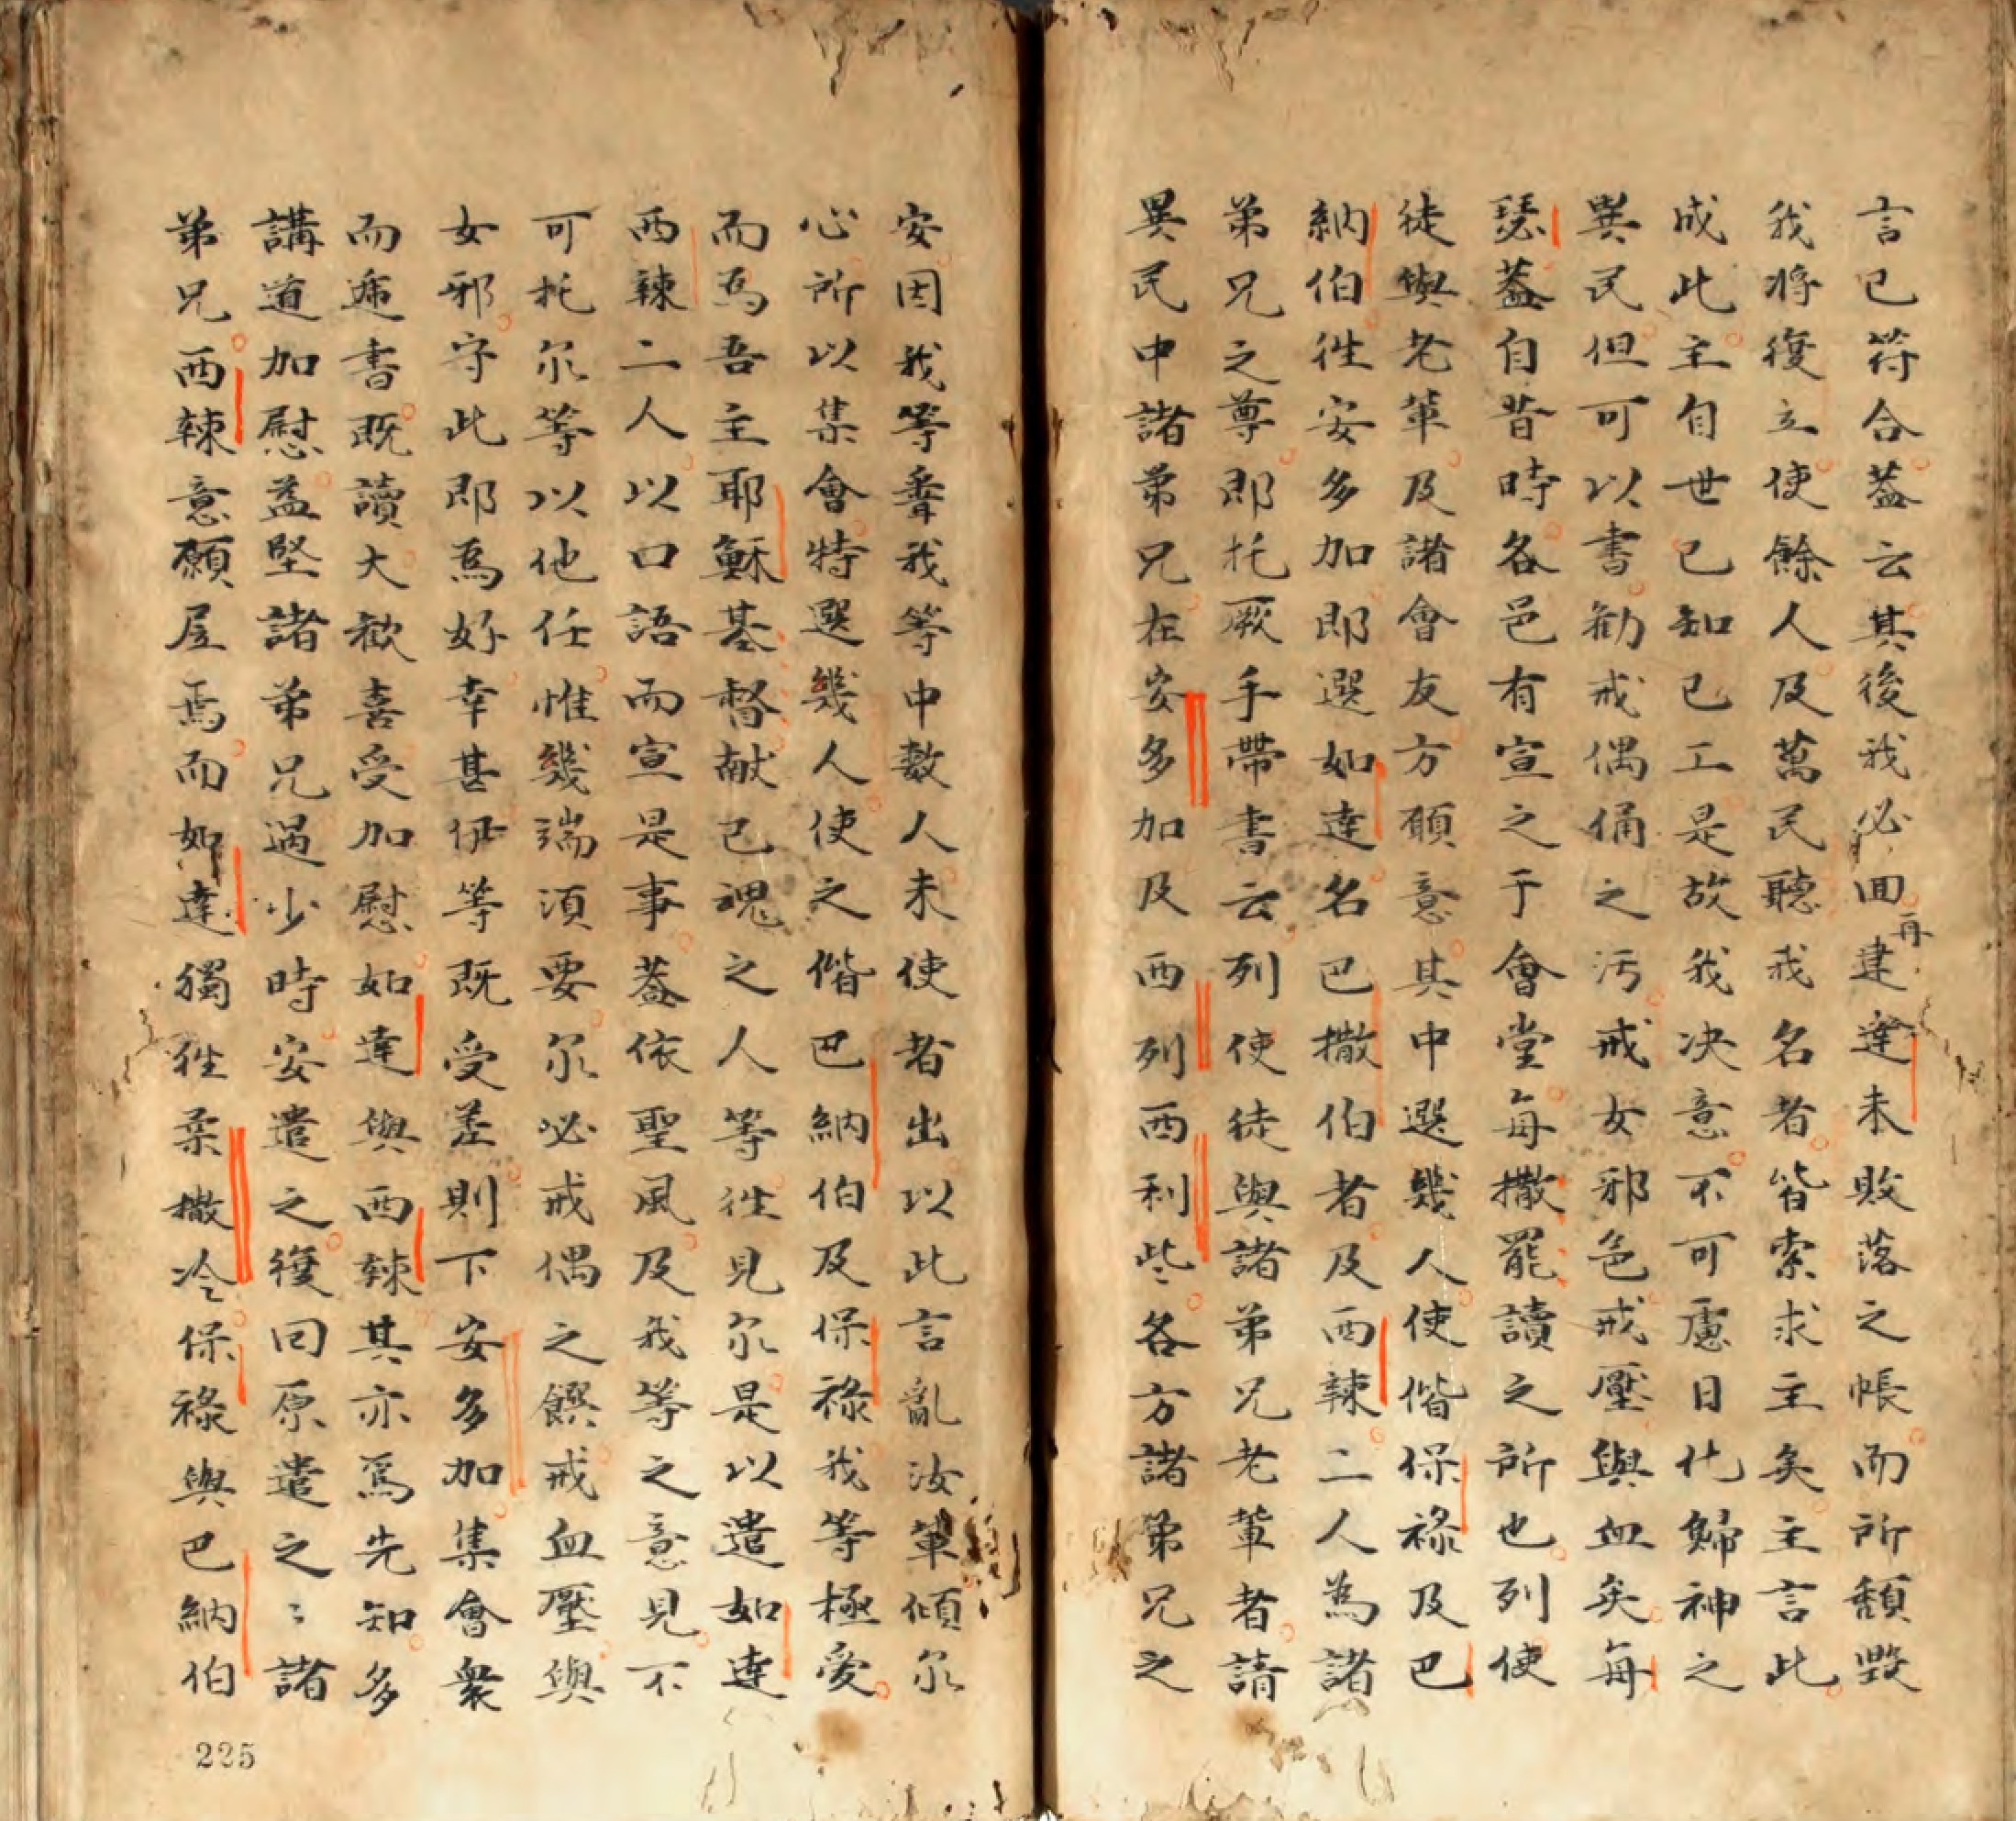 言已符合蓋云其後我必回再建達未敗落之帳而所頽毀
我將復立使餘人及萬民聽我名者皆索求主矣主言此
成此主自世已知已工是故我决意不可慮日化歸神之
異民但可以書勸戒偶俑之污戒女邪色戒壓與血矣每
瑟蓋自昔時各邑有宣之于會堂每撒罷讀之所也列使
徒與老輩及諸會友方願意其中選幾人使偕保祿及巴
納伯徃安多加即選如達名巴撒伯者及西辣二人為諸
弟兄之尊即托厥手帶書云列使徒與諸弟兄老輩者請
異民中諸弟兄在安多加及西列西利些各方諸弟兄之
安因我等聞我等中數人未使者出以此言亂汝輩傾尔
心所以集會特選幾人使之偕巴納伯及保祿我等極愛
而為吾主耶穌基督献己魂之人等徃見尔是以遣如達
西辣二人以口語而宣是事蓋依聖風及我等之意見不
可托尔等以他任惟幾端須要尔必戒偶之饌戒血壓與
女邪守此即為好幸甚伊等既受差則下安多加集會衆
而遞書既讀大歓喜受加慰如達與西辣其亦為先知多
講道加慰益堅諸弟兄過少時安遣之復回原遣之〻諸
弟兄西辣意願居焉而如達獨徃柔撒冷保祿與巴納伯
225